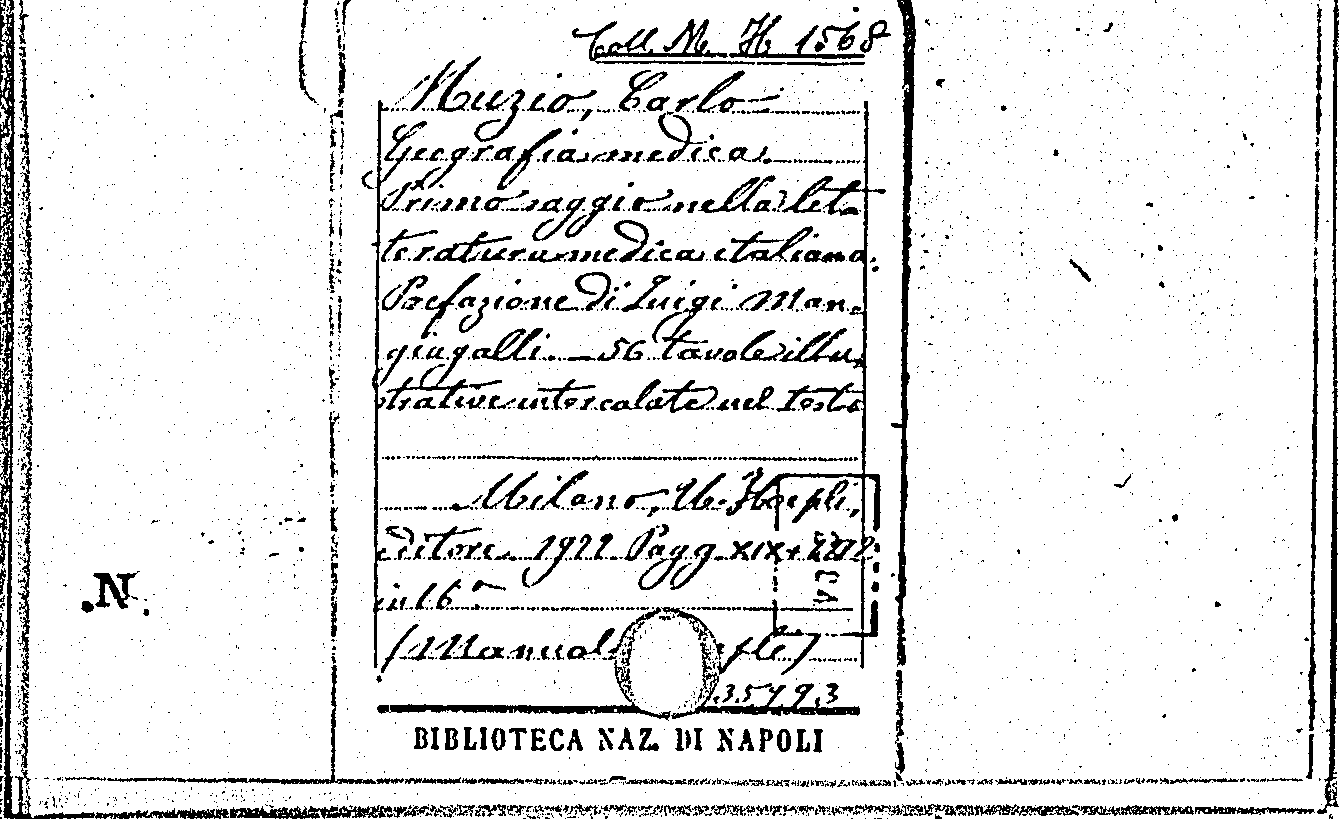 Coll. M. H. 1568
Muzio, Carlo
Geografia medica.
Primo saggio nella let-
teratura medica italiana.
Prefazione di Luigi Man-
giagalli. — 56 tavole illu-
strative intercalate nel testo
Milano, U. Hoepli,
editore. 1922 Pagg XIX +
in 16º
(Manual
35793
BIBLIOTECA NAZ. DI NAPOLI
.N.